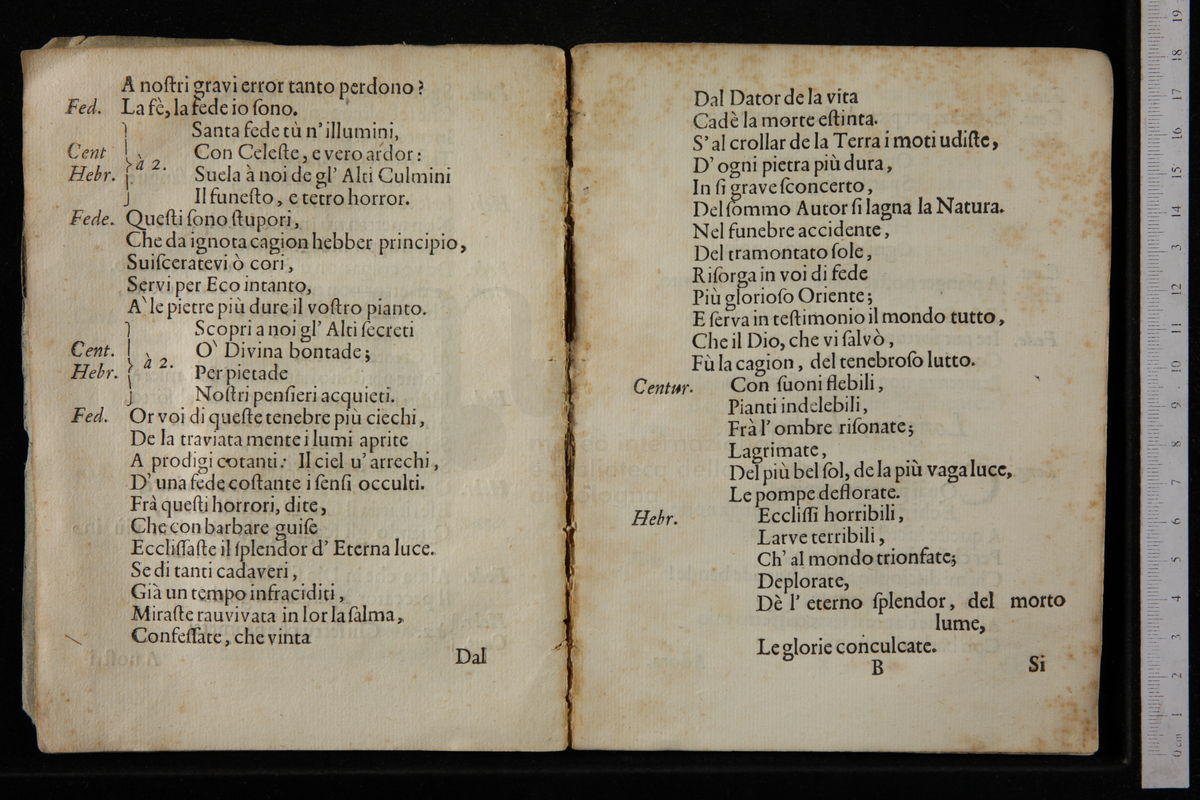 A noſtri gravi error tanto perdono?
Fed. La fè, la fede io ſono.
Santa fede tù n'illumini,
Cent Con Celeſte, e vero ardor:
à 2.
Hebr. Suela à noi de gl' Alti Culmini
Il funeſto, e tetro horror.
Fede. Queſti ſono ſtupori,
Che da ignota cagion hebber principio,
Suiſceratevi ò cori,
Servi per Eco intanto,
A' le pietre più dure il voſtro pianto.
Scopri a noi gl' Alti ſecreti
Cent. O' Divina bontade;
à 2.
Hebr. Per pietade
Noſtri penſieri acquieti.
Fed. Or voi di queſte tenebre più ciechi,
De la traviata mente i lumi aprite
A prodigi cotanti: Il ciel u' arrechi,
D' una fede coſtante i ſenſi occulti.
Frà queſti horrori, dite,
Che con barbare guiſe
Eccliſſaſte il ſplendor d' Eterna luce.
Se di tanti cadaveri,
Già un tempo infraciditi,
Miraſte rauvivata in lor la ſalma,
Confeſſate, che vinta
Dal
Dal Dator de la vita
Cadè la morte eſtinta.
S' al crollar de la Terra i moti udiſte,
D' ogni pietra più dura,
In ſi grave ſconcerto,
Del ſommo Autor ſi lagna la Natura.
Nel funebre accidente,
Del tramontato ſole,
Riſorga in voi di fede
Più glorioſo Oriente;
E ſerva in teſtimonio il mondo tutto,
Che il Dio, che vi ſalvò,
Fù la cagion, del tenebroſo lutto.
Centur. Con ſuoni flebili,
Pianti indelebili,
Frà l' ombre riſonate;
Lagrimate,
Del più bel ſol, de la più vaga luce,
Le pompe deflorate.
Hebr. Eccliſſi horribili,
Larve terribili,
Ch' al mondo trionfate;
Deplorate,
Dè l' eterno ſplendor, del morto
lume,
Le glorie conculcate.
B Si